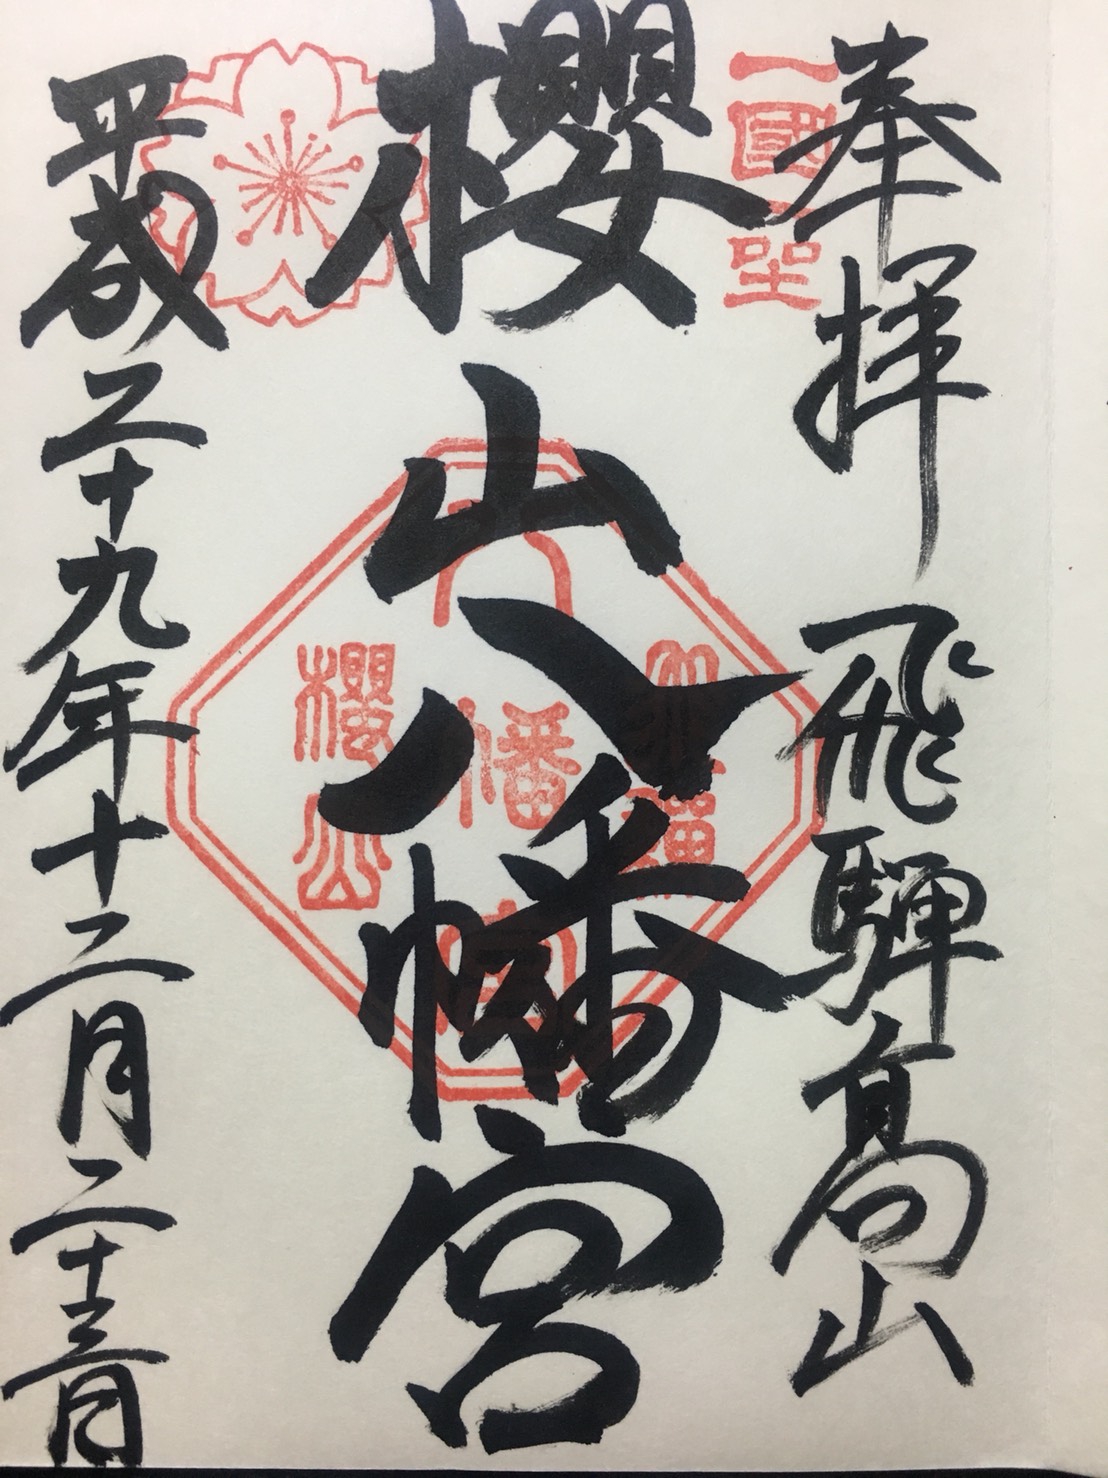 奉拝 飛騨高山
一國
櫻山八幡宮
八幡宮
櫻山
平成二十九年十二月二十三日